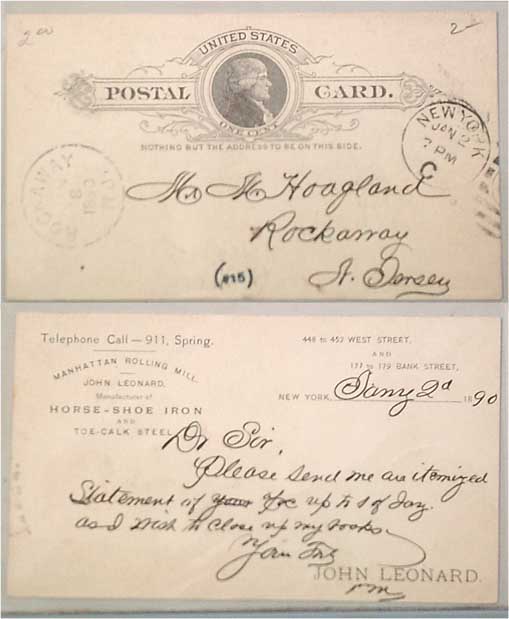 2 00
2
UNITED STATES
POSTAL CARD.
ONE CENT
NOTHING BUT THE ADDRESS TO BE ON THIS SIDE.
NEW YORK
JAN 2
7 PM
C
ROCKAWAY
N.J.
M. Hoagland
Rockaway
N. Jersey
(#15)
Telephone Call — 911, Spring.
MANHATTAN ROLLING MILL.
JOHN LEONARD,
Manufacturer of
HORSE-SHOE IRON
AND
TOE-CALK STEEL
448 to 452 WEST STREET,
AND
177 to 179 BANK STREET,
NEW YORK, Jany 2d 1890
Dr Sir,
Please send me an itemized
Statement of up to 1 of Jay.
as I wish to close up my books
JOHN LEONARD.